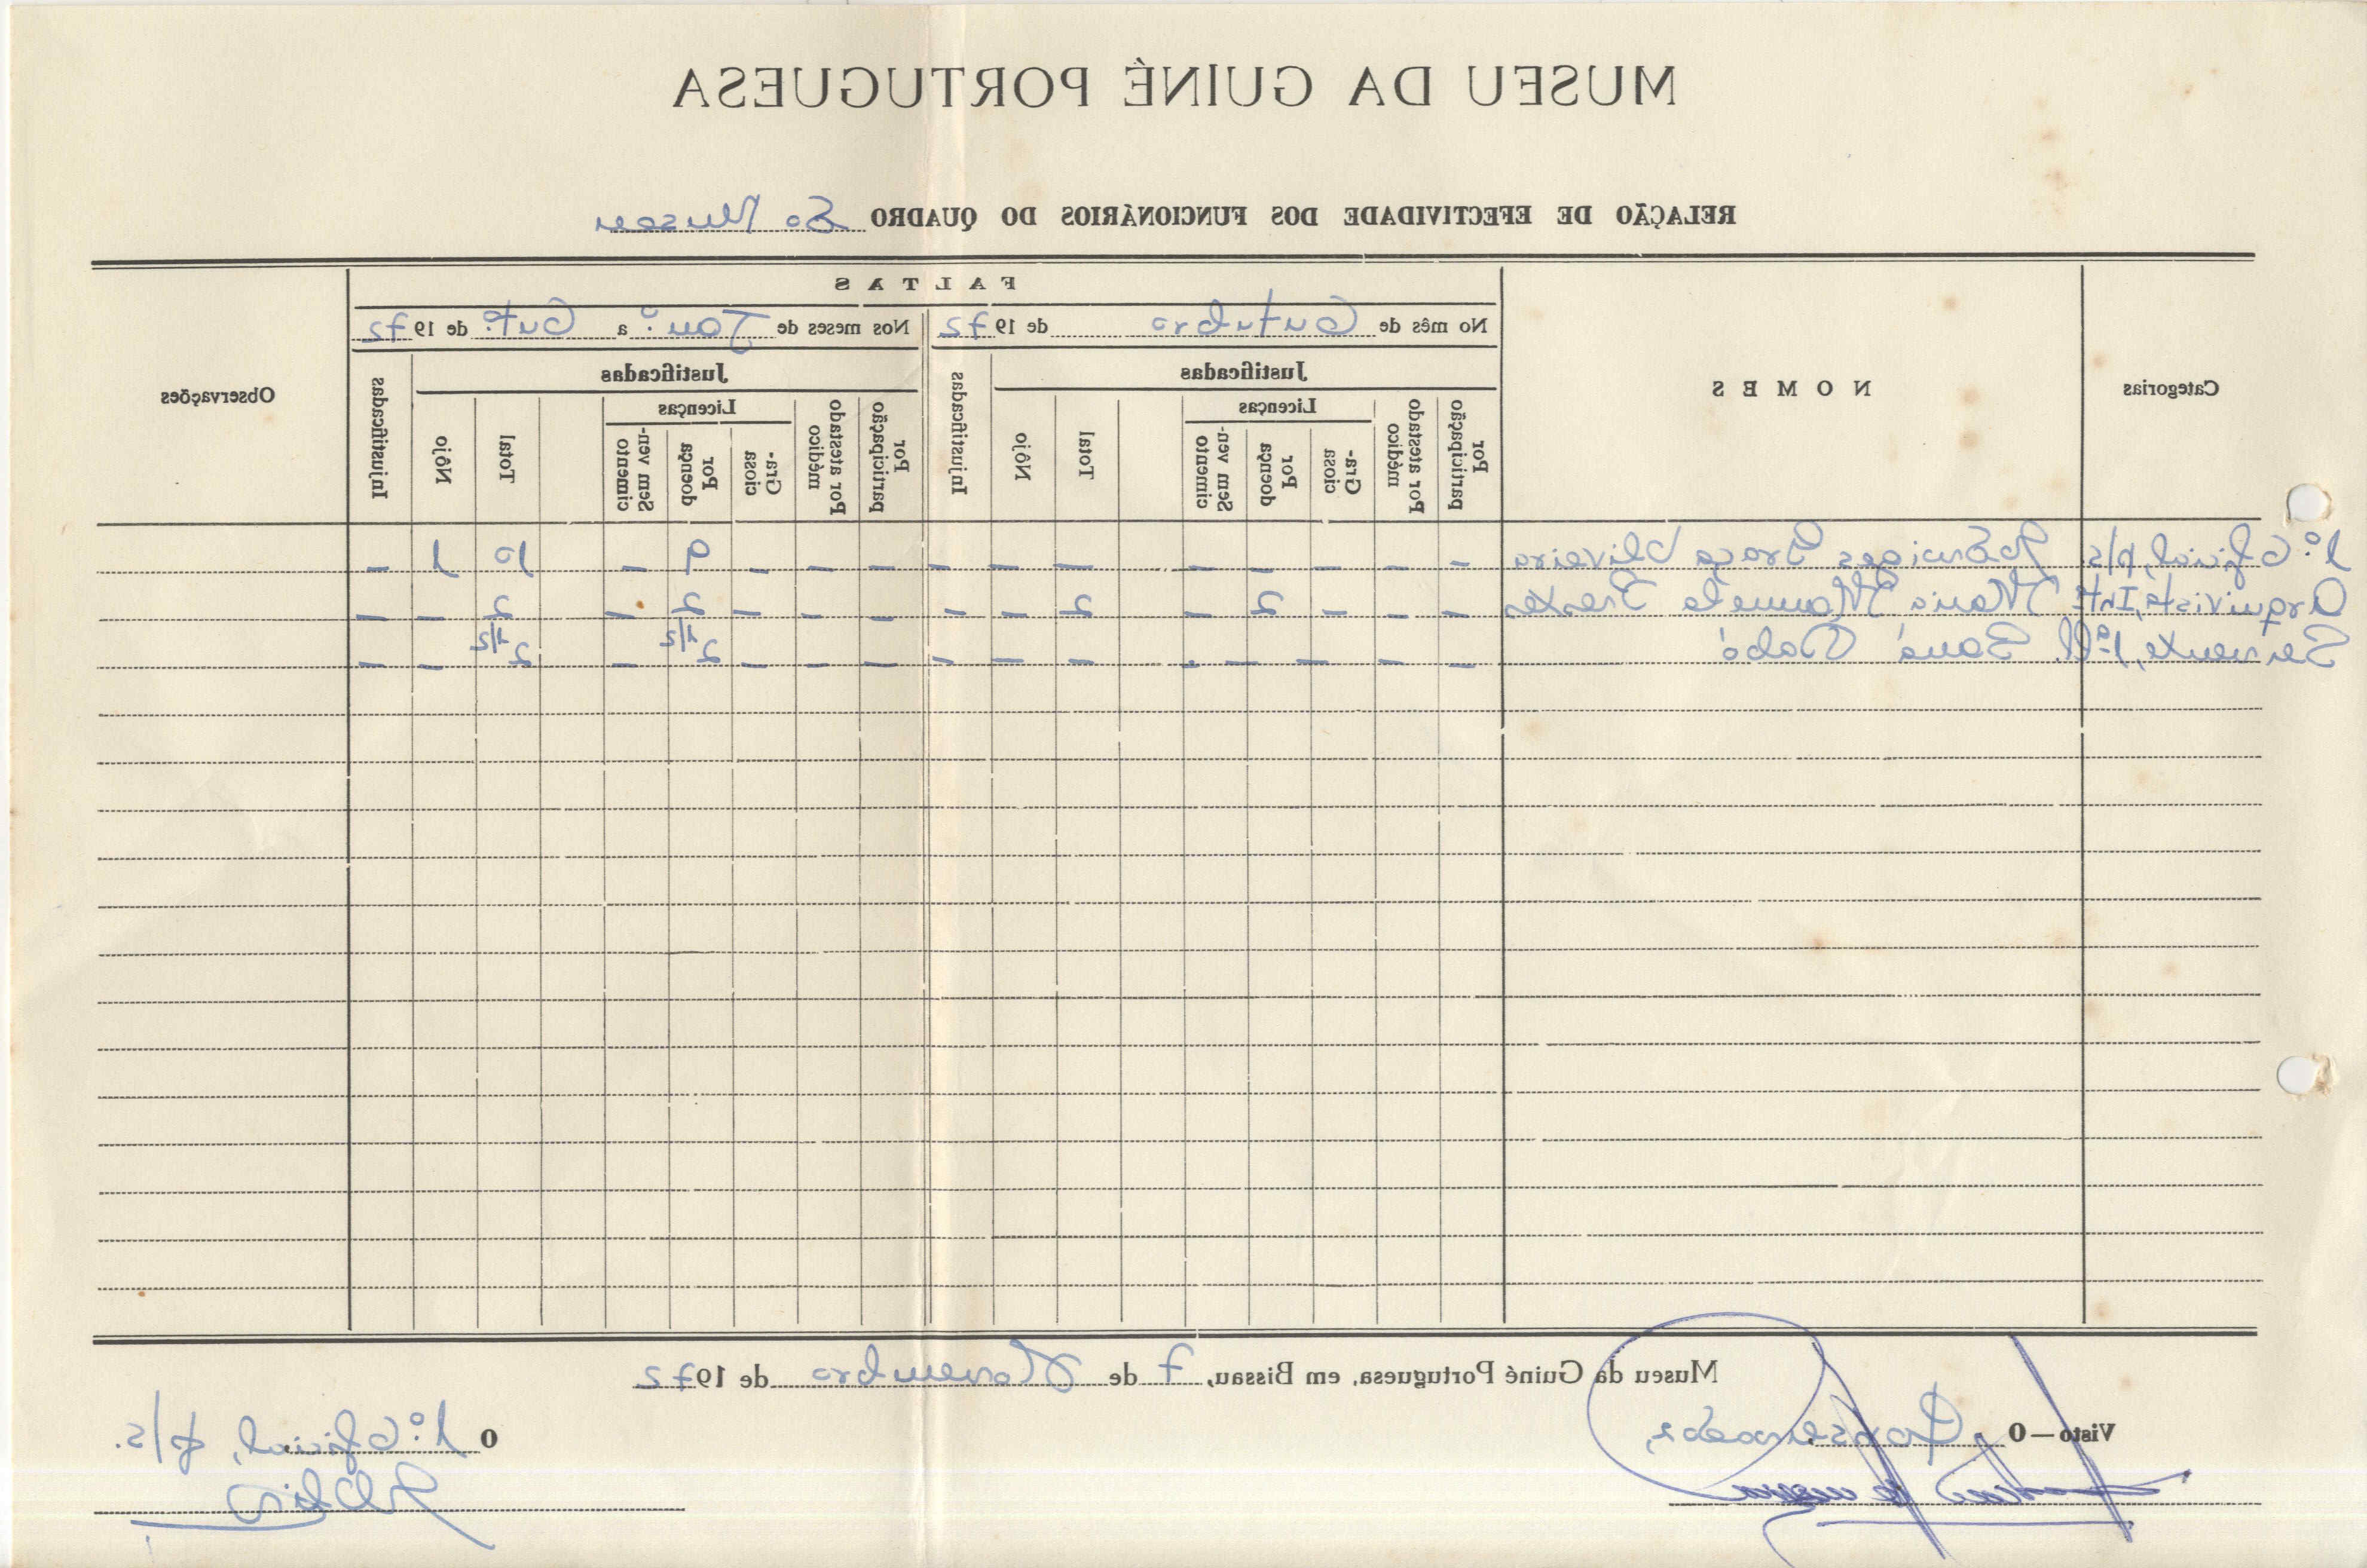 MUSEU DA GUINÉ PORTUGUESA
RELAÇÃO DE EFECTIVIDADE DOS FUNCIONÁRIOS DO QUADRO do Museu
Categorias
NOMES
FALTAS
Observações
No mês de Outubro de 1972
Nos meses de Jan.º a Out.º de 1972
Justificadas
Injustificadas
Justificadas
Injustificadas
Por participação
Por atestado médico
Licenças
Total
Nôjo
Por participação
Por atestado médico
Licenças
Total
Nôjo
Gra-ciosa
Por doença
Sem ven-cimento
Gra-ciosa
Por doença
Sem ven-cimento
1.º Oficial, p/s - - - - - - - - - - - 9 - 10 1 -
Arquivista, Int.º Maria Manuela - - - 2 - 2 - - - - - 2 - 2 - -
Servente, 1.ª Cl. - - - - - - - - - - - 2 1/2 - 2 1/2 - -
Museu da Guiné Portuguesa, em Bissau, 7 de Novembro de 1972
Visto — O Conservador,
O 1.º Oficial, p/s.